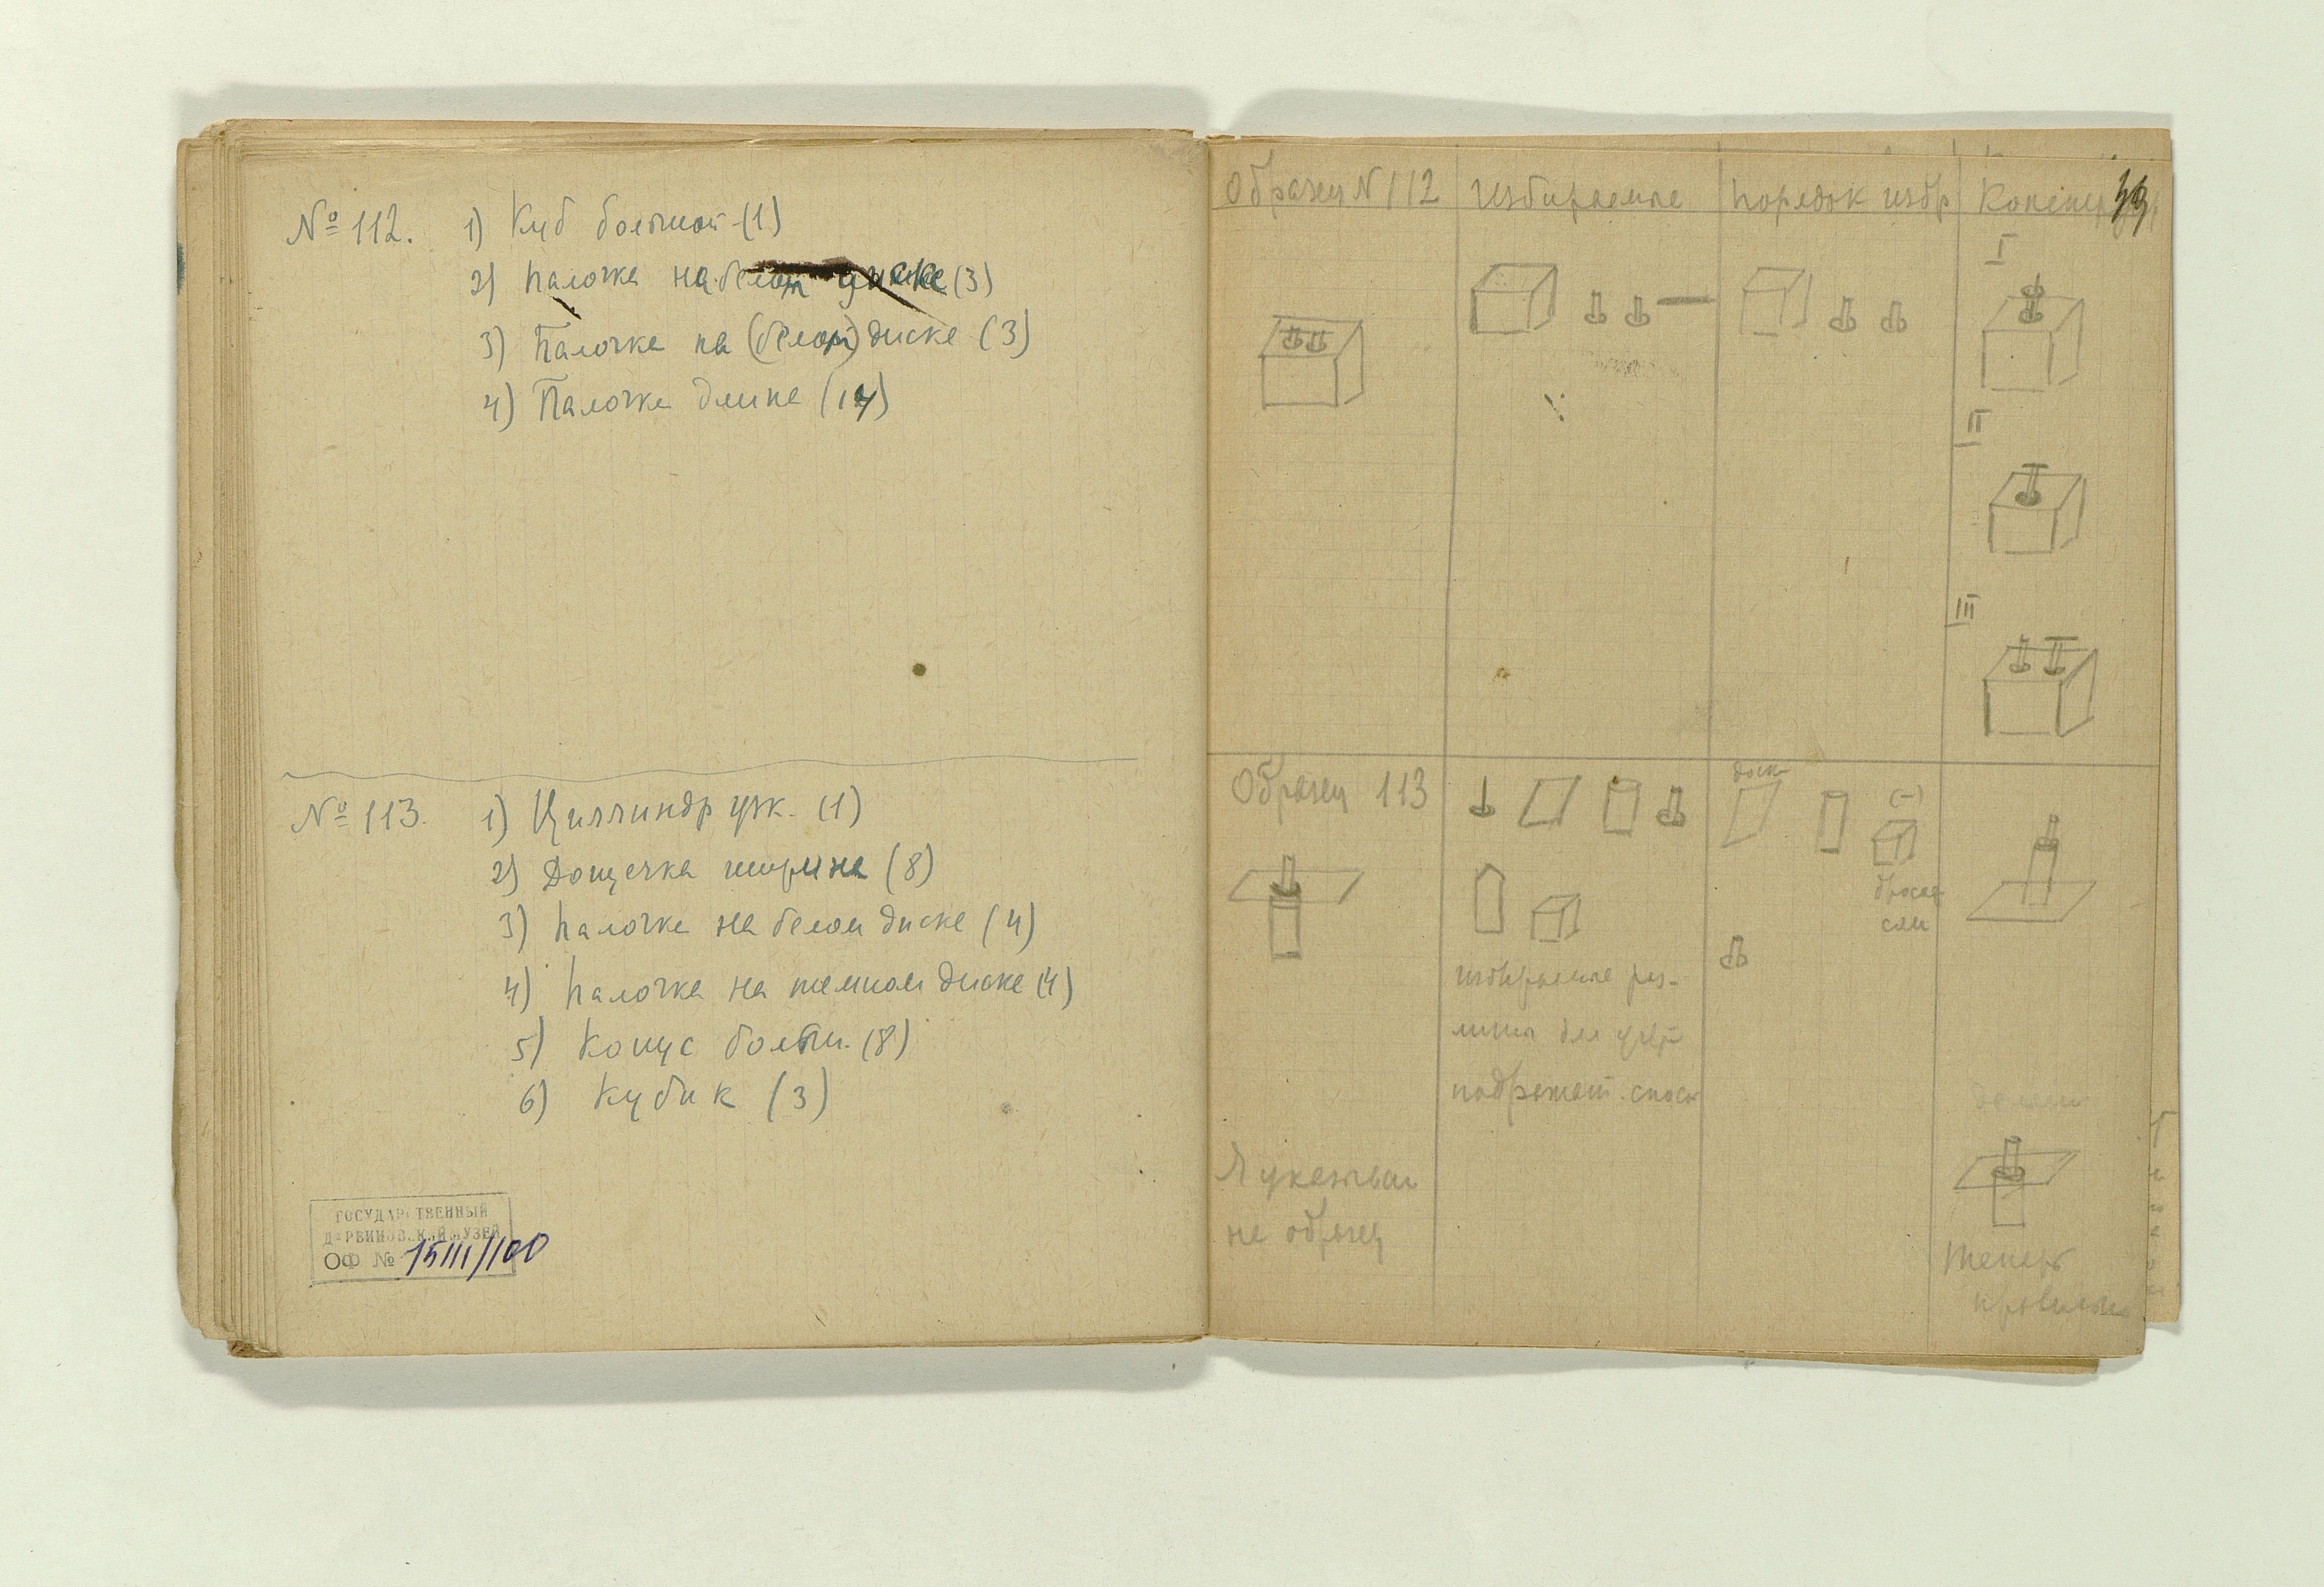 № 112. 1) Куб большой (1)
2) Палочка на белом диске (3)
3) Палочка на (белом) диске (3)
4) Палочка длина (14)
№ 113. 1) Циллиндр узк. (1)
2) Дощечка ширина (8)
3) Палочка на белом диске (4)
4) Палочка на темном диске (4)
5) Конус больш. (8)
6) Кубик (3)
ГОСУДАРСТВЕННЫЙ
ДАРВИНОВСКИЙ МУЗЕЙ
ОФ № 15111/100
Образец N 112 Избираемые Порядок избр
I
II
III
Образец 113
доск
(-)
бросает
сам
избираемые раз-
личны для
подражат. способ
Я указываю
на образец
делает
Теперь
правильно